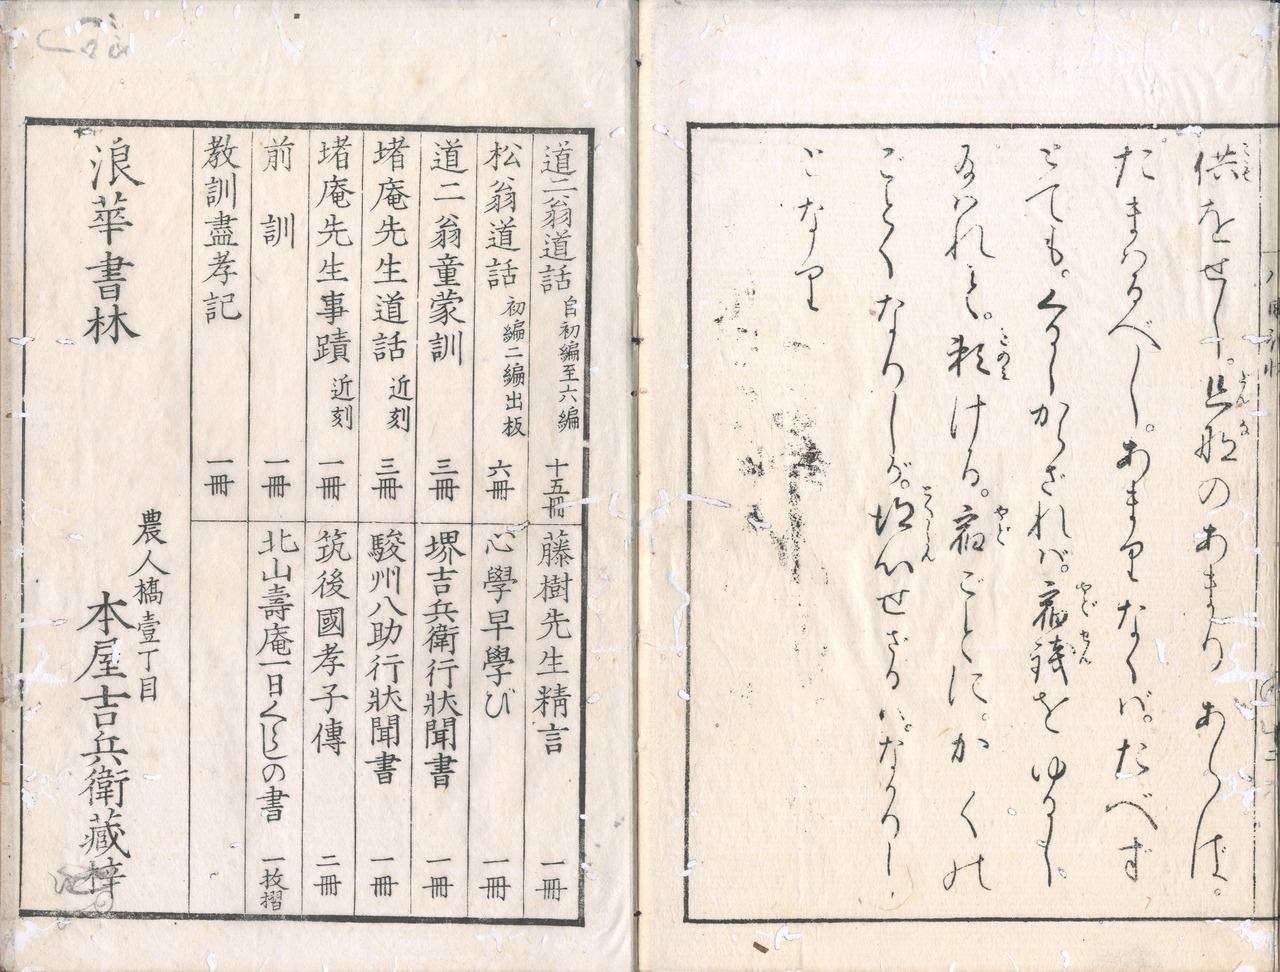 供をせし。旦那のあまりあらば。
たまはるべし。あまりなくば。たべず
とても。くるしからざれば。宿銭をゆるし
給はれと。頼ける。宿ごとに。かくの
ごとくなりしが。得心せざるは。なかりし
となり
道二翁道話 自初編至六編 十五冊
松翁道話 初編二編出板 六冊
道二翁童蒙訓 三冊
堵庵先生道話 近刻 三冊
堵庵先生事蹟 近刻 一冊
前訓 一冊
教訓盡孝記 一冊
藤樹先生精言 一冊
心學早學び 一冊
堺吉兵衛行狀聞書 一冊
駿州八助行狀聞書 一冊
筑後國孝子傳 二冊
北山壽庵一日くらしの書 一枚摺
浪華書林
農人橋壹丁目
本屋吉兵衛藏梓